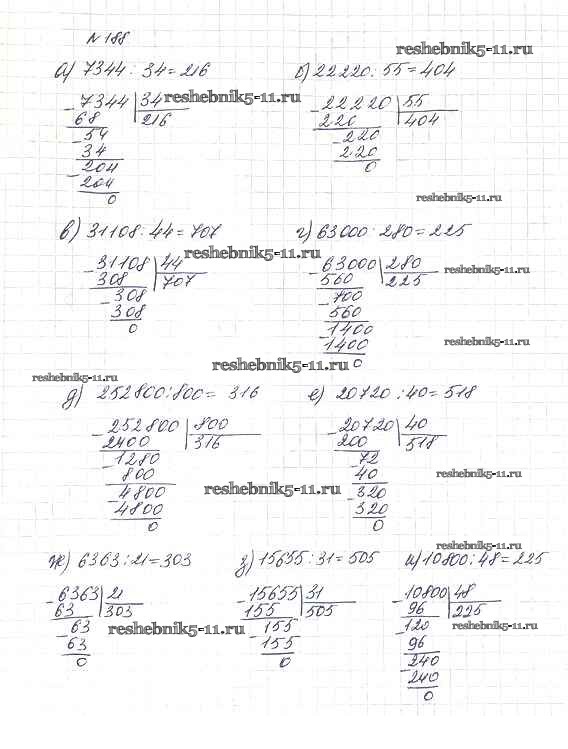 № 188
reshebnik5-11.ru
а) 7344 : 34 = 216
б) 22220 : 55 = 404
- 7344 | 34
reshebnik5-11.ru
68
216
- 54
34
- 204
204
0
- 22220 | 55
220
404
- 220
220
0
reshebnik5-11.ru
в) 31108 : 44 = 707
г) 63000 : 280 = 225
reshebnik5-11.ru
- 31108 | 44
308
707
- 308
308
0
- 63000 | 280
reshebnik5-11.ru
560
225
- 700
560
- 1400
1400
0
reshebnik5-11.ru
reshebnik5-11.ru
reshebnik5-11.ru
д) 252800 : 800 = 316
е) 20720 : 40 = 518
- 252800 | 800
2400
316
- 1280
800
- 4800
- 4800
0
reshebnik5-11.ru
- 20720 | 40
200
518
- 72
40
- 320
320
0
reshebnik5-11.ru
reshebnik5-11.ru
ж) 6363 : 21 = 303
з) 15655 : 31 = 505
и) 10800 : 48 = 225
- 6363 | 21
63
303
- 63
63
0
reshebnik5-11.ru
- 15655 | 31
155
505
- 155
155
0
- 10800 | 48
96
225
reshebnik5-11.ru
- 120
96
- 240
240
0